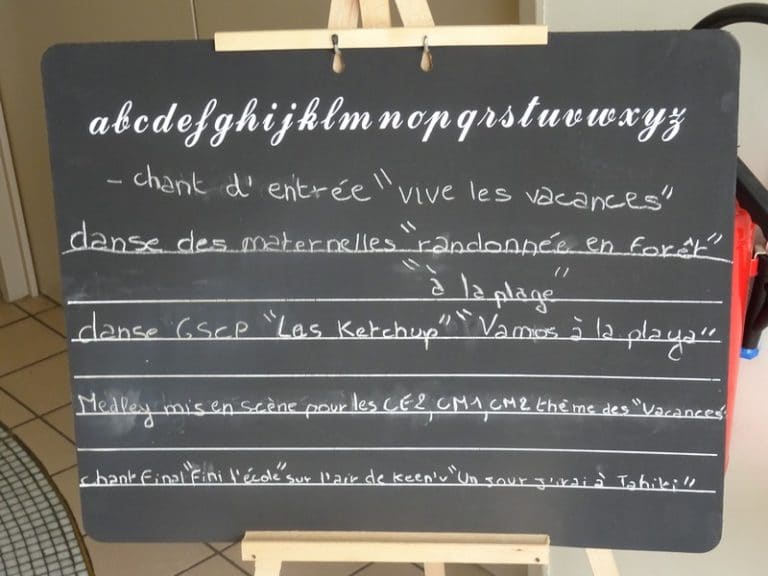 abcdefghijklmnopqrstuvwxyz
- chant d'entrée "vive les vacances"
danse des maternelles "randonnée en forêt"
"à la plage"
danse GSCP "Las Ketchup" "Vamos à la playa"
Medley mis en scène pour les CE2, CM1, CM2 thème des "Vacances
chant Final "Fini l'école" sur l'air de Keen'v "Un jour j'irai à Tahiti"